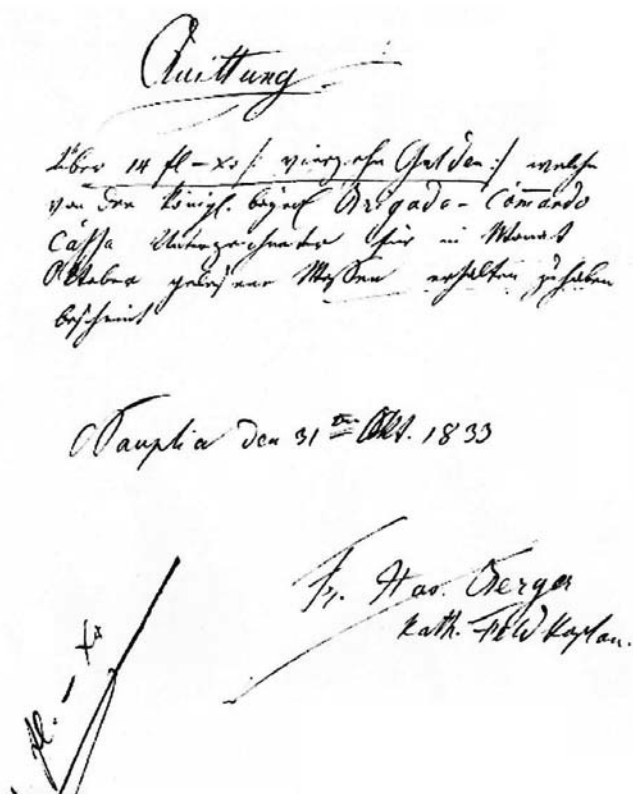 Quittung
Über 14 fl – xr /: vierzehn Gulden :/ welche
von der Königl. bayer. Brigade-Commando
Cassa Unterzeichneter für im Monat
Oktober gelesene Messen erhalten zu haben
bescheint
Nauplia den 31ten Okt. 1833
Fr. Xav. Berger
kath. Feld Kaplan.
fl. – xr